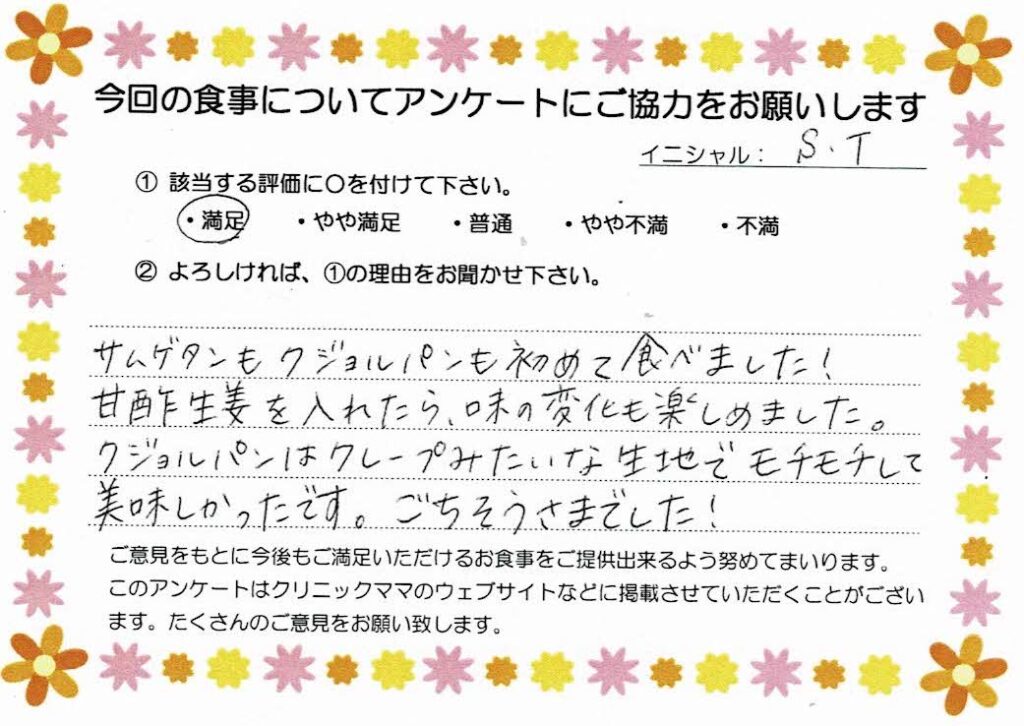 今回の食事についてアンケートにご協力をお願いします
イニシャル： S.T
① 該当する評価に○を付けて下さい。
・満足 ・やや満足 ・普通 ・やや不満 ・不満
② よろしければ、①の理由をお聞かせ下さい。
サムゲタンもクジョルパンも初めて食べました!
甘酢生姜を入れたら、味の変化も楽しめました。
クジョルパンはクレープみたいな生地でモチモチして
美味しかったです。ごちそうさまでした!
ご意見をもとに今後もご満足いただけるお食事をご提供出来るよう努めてまいります。
このアンケートはクリニックママのウェブサイトなどに掲載させていただくことがござい
ます。たくさんのご意見をお願い致します。